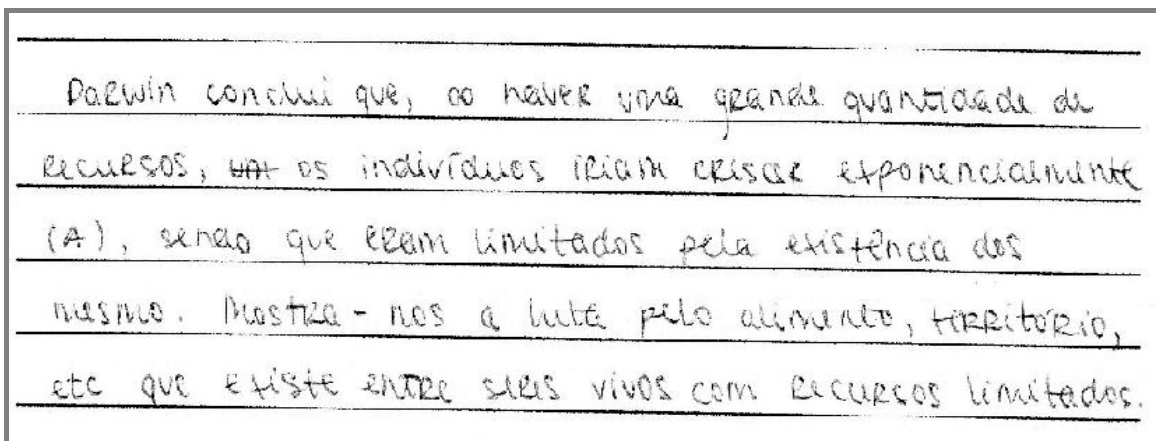 Darwin conclui que, ao haver uma grande quantidade de
recursos, os indivíduos iriam criscar exponencialmente
(A), sendo que eram limitados pela existência dos
mesmo. Mostra-nos a luta pelo alimento, território,
etc que existe entre seres vivos com recursos limitados.